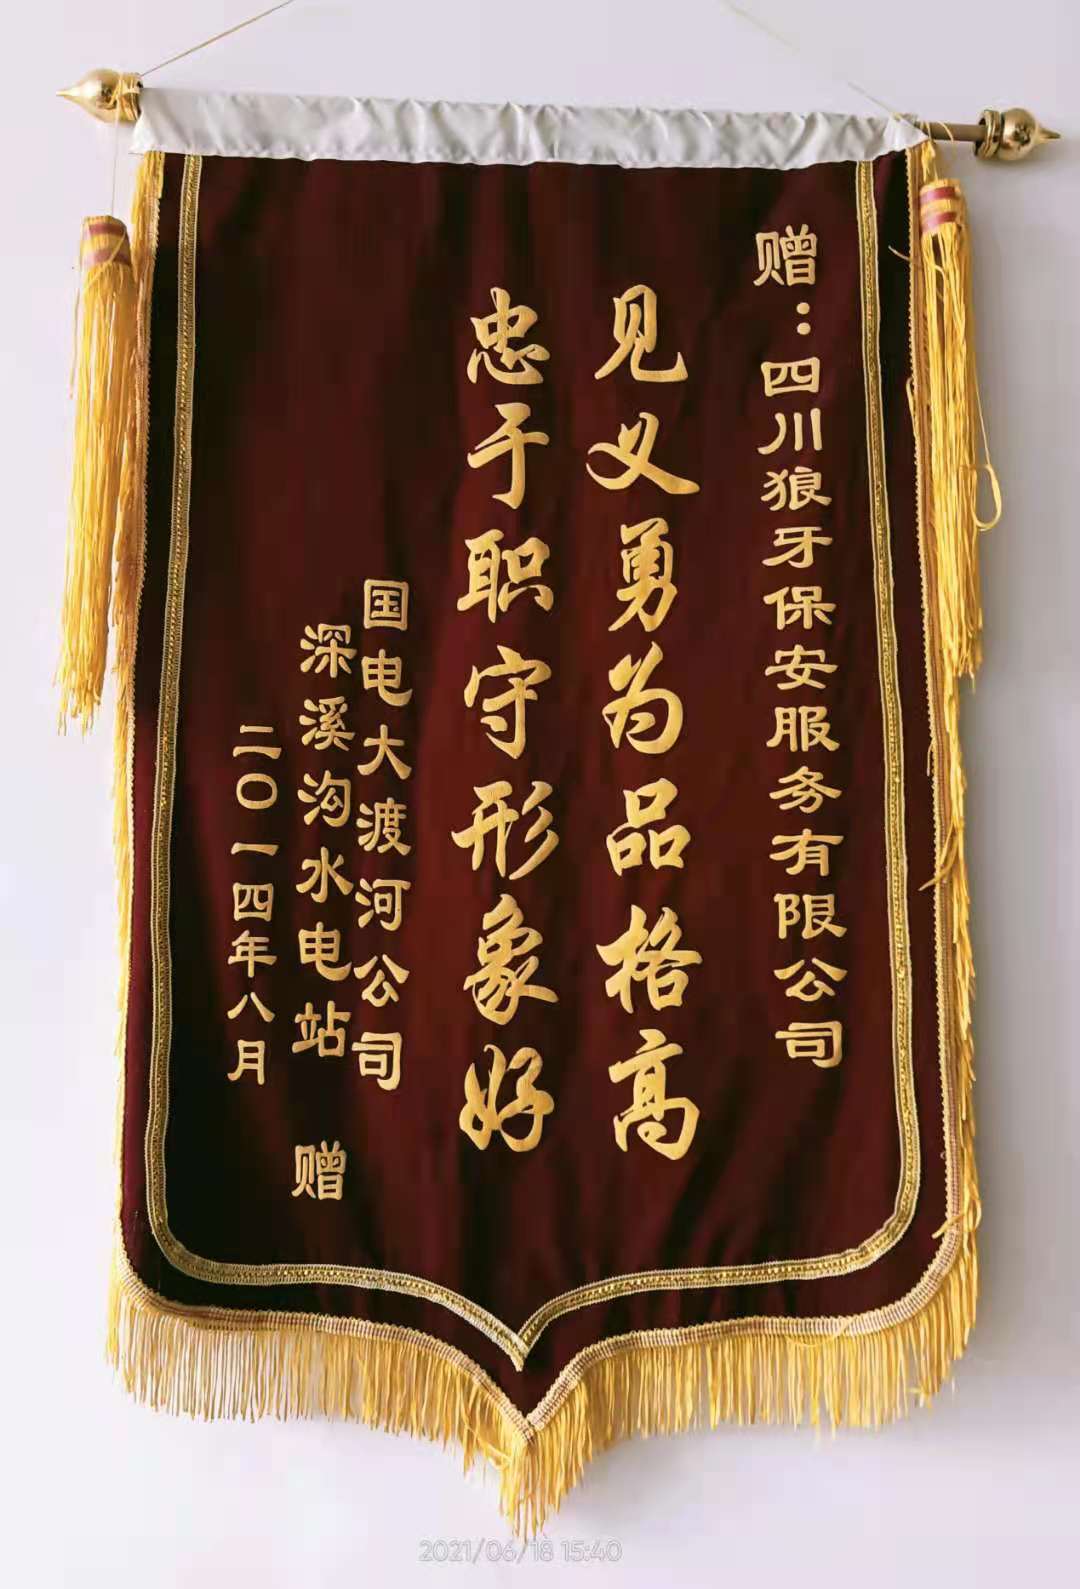 赠：四川狼牙保安服务有限公司
见义勇为品格高
忠于职守形象好
国电大渡河公司
深溪沟水电站 赠
二〇一四年八月
2021/06/18 15:40